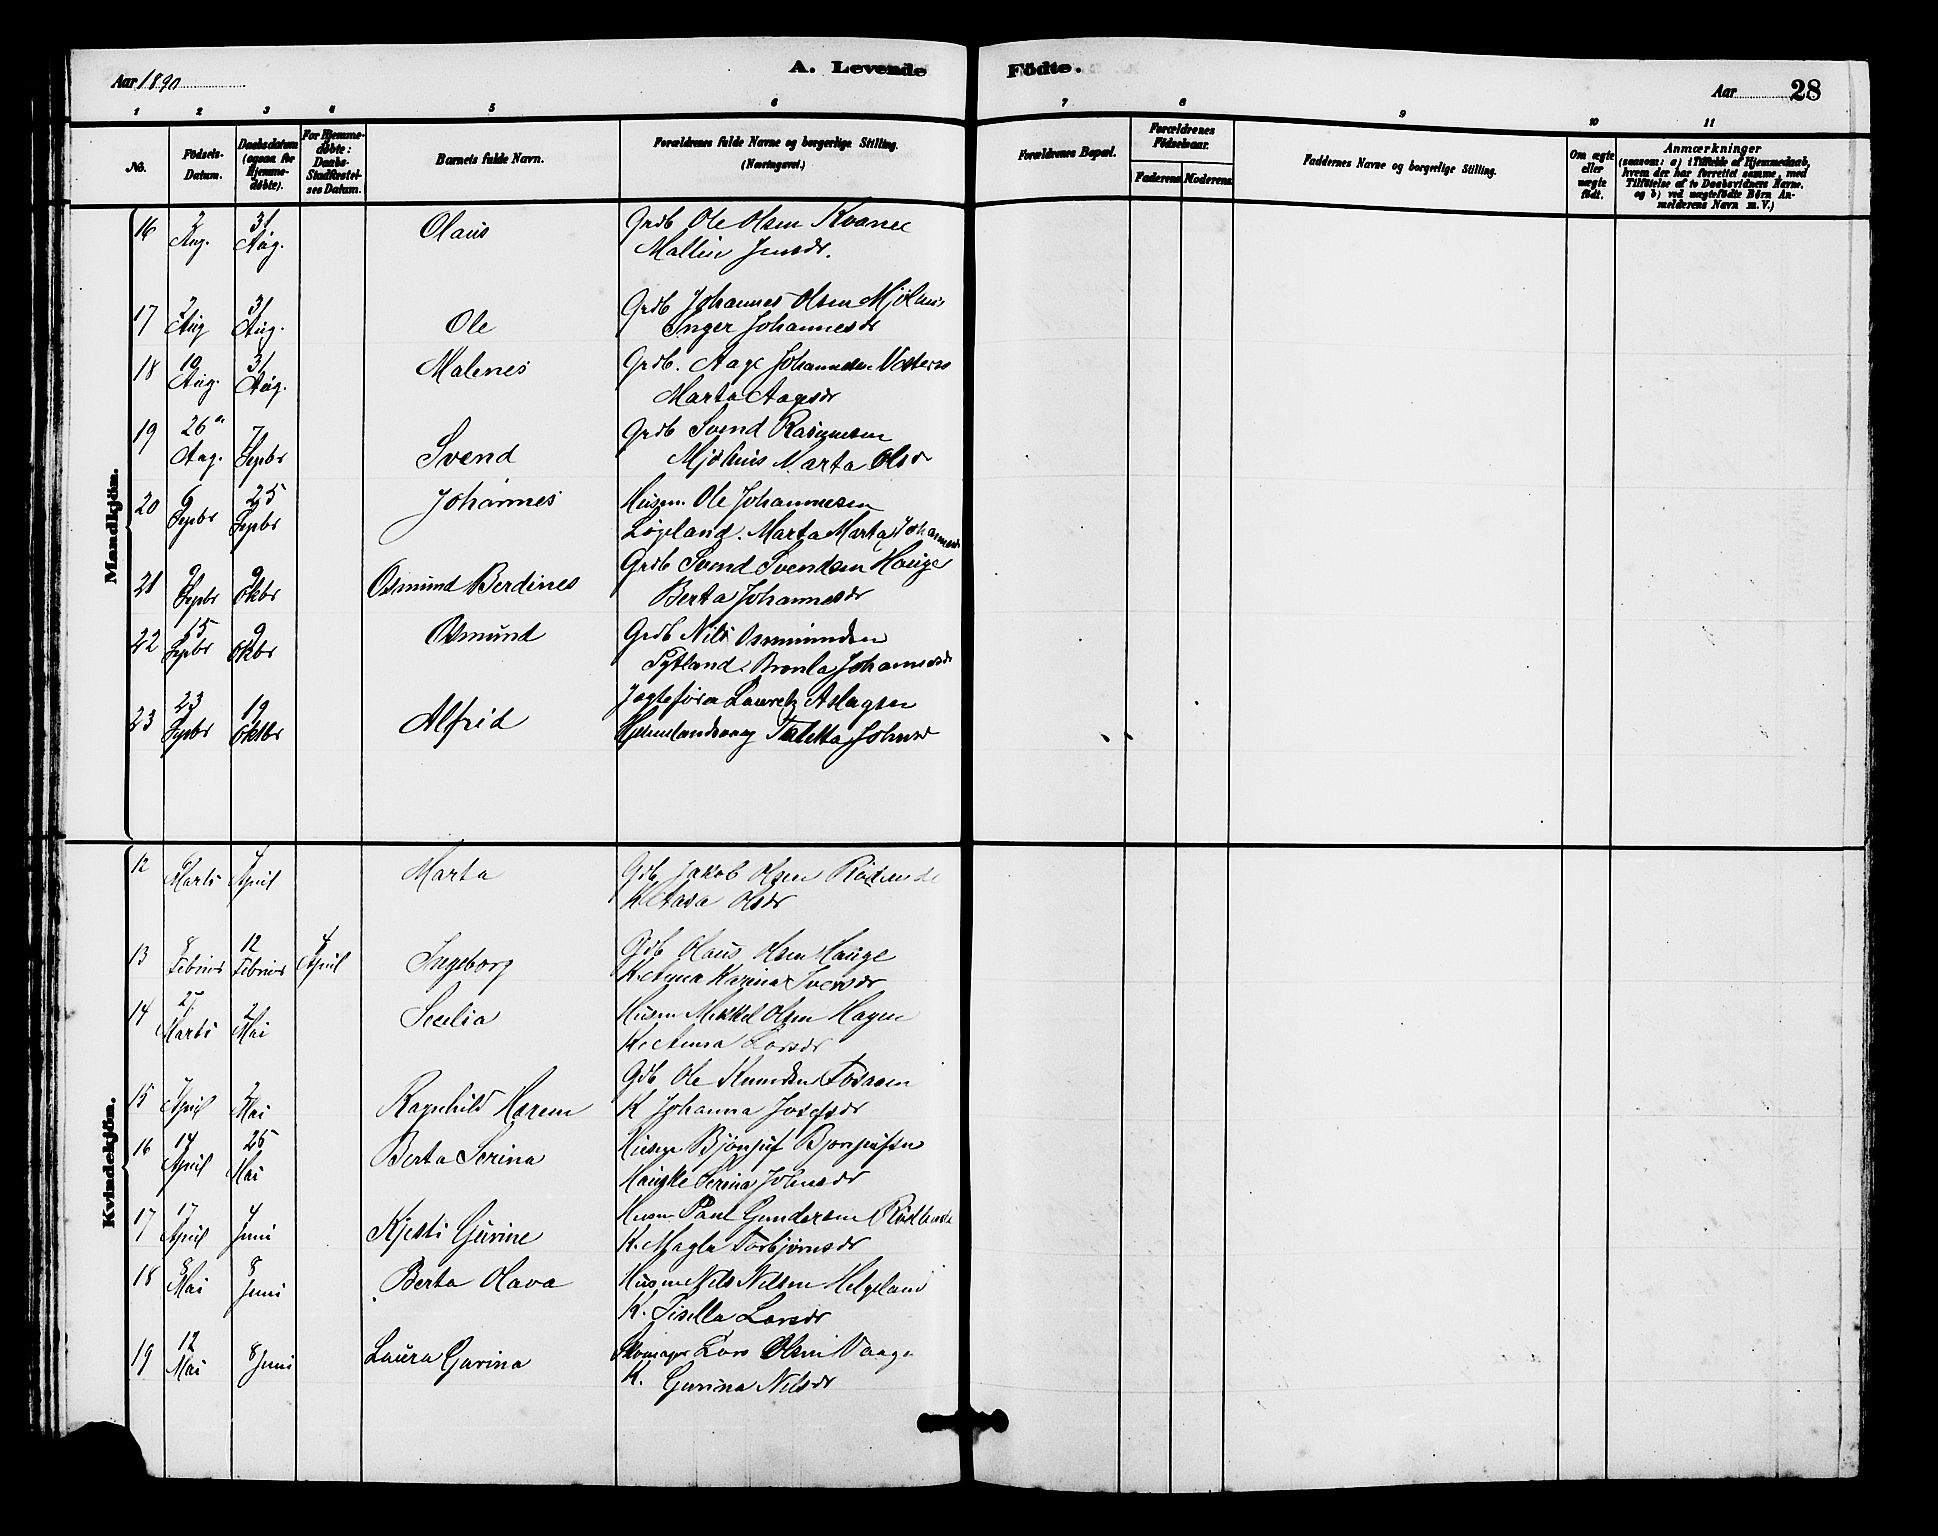 Aar 1890
A. Levende Födte.
Aar 28
1 2 3 4 5 6 7 8 9 10 11
No.
Födsels-Datum.
Daabsdatum (ogsaa for Hjemmedöbte).
For Hjemmedöbte: Daabs-Stadfæstelses Datum.
Barnets fulde Navn.
Forældrenes fulde Navne og borgerlige Stilling. (Næringsvei.)
Forældrenes Bopæl.
Forældrenes Födselsaar.
Faderens Moderens
Faddernes Navne og borgerlige Stilling.
Om ægte eller uægte födt.
Anmærkninger
(saasom: a) i Tilfælde af Hjemmedaab, hvem der har forrettet samme, med Tilföielse af to Daabsvidners Navne, og b) ved uægtefödte Börn Anmelderens Navn m. V.)
Mandkjön.
16 2 Aug. 31 Aug. Olaus Grdb Ole Olsen
Jensdr.
17 2 Aug 31 Aug. Ole Grdb Johannes Olsen
Inger Johannesdr
18 19 Aug. 31 Aug. Malenes Grdb. Aage Johannesen
Marta Aagesdr
19 26 Aug. 7 Septbr Svend Grdb Svend Rasmusen
Mjølhus Marta Olsdr
20 6 Septbr 25 Septbr Johannes Husm. Ole Johannesen
Løgeland. Marta Marta Johannesdr
21 9 Septbr 9 Oktbr Osmund Berdines Grdb Svend Svendsen Hauge
Berta Johannesdr
22 15 Septbr 9 Oktbr Osmund Grdb Nils Osmundsen
Tytland. Johannesdr
23 23 Septbr 19 Oktbr Alfred Jagtefører Lauretz Aslagsen
Johnsdr
Kvindekjön.
12 6 Marts 4 April Marta Gdb Jakob Olsen
K Olsdr
13 8 Februar 12 Februar 4 April Ingeborg Gdb Olaus Olsen Hauge
K. Anna Karina Iversdr
14 27 Marts 2 Mai Secelia Husm Mikkel Olsen Hagen
K. Anna Larsdr
15 7 April 2 Mai Ragnhild Maren Gdb Ole Knudsen Fossen
K Johanna Josefsdr
16 14 April 26 Mai Berta Serina Husm Bjørgulf Bjørgulfsen
Hauske Serina Johnsdr
17 17 April 4 Juni Kjesti Gurine Husm Paul Gundersen
K. Magla Torbjørnsdr
18 8 Mai 8 Juni Berta Olava Husm Nils Nilsen Helgeland
K. Sisella Larsdr
19 12 Mai 8 Juni Laura Gurina Skomager Lars Olsen Vaage
K. Gurina Nilsdr